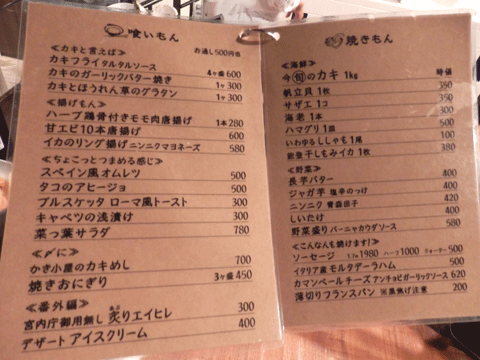 喰いもん
お通し500円也
≪カキと言えば≫
カキフライタルタルソース 4ヶ盛600
カキのガーリックバター焼き 1ヶ300
カキとほうれん草のグラタン 1ヶ300
≪揚げもん≫
ハーブ鶏骨付きモモ肉唐揚げ 1本280
甘エビ10本唐揚げ 600
イカのリング揚げ ニンニクマヨネーズ 580
≪ちょこっとつまめる感じ≫
スペイン風オムレツ 500
タコのアヒージョ 500
ブルスケッタ ローマ風トースト 300
キャベツの浅漬け 300
菜っ葉サラダ 780
≪〆に≫
かき小屋のカキめし 700
焼きおにぎり 3ヶ盛450
≪番外編≫
宮内庁御用無し 炙りエイヒレ 300
デザート アイスクリーム 400
焼きもん
≪海鮮≫
今旬のカキ 1kg 時価
帆立貝 1枚 350
サザエ 1コ 350
海老 1本 300
ハマグリ 1皿 500
いわゆるししゃも1尾 100
能登干しもみイカ 1枚 380
≪野菜≫
長芋バター 400
ジャガ芋 塩辛のっけ 400
ニンニク 青森田子 420
しいたけ 400
野菜盛り バーニャカウダソース 580
≪こんなんも焼けます!≫
ソーセージ 1980 ハーフ1000 クォーター500
イタリア産 モルタデーラハム 500
カマンベールチーズ アンチョビガーリックソース 620
薄切りフランスパン ※黒焦げ注意 200